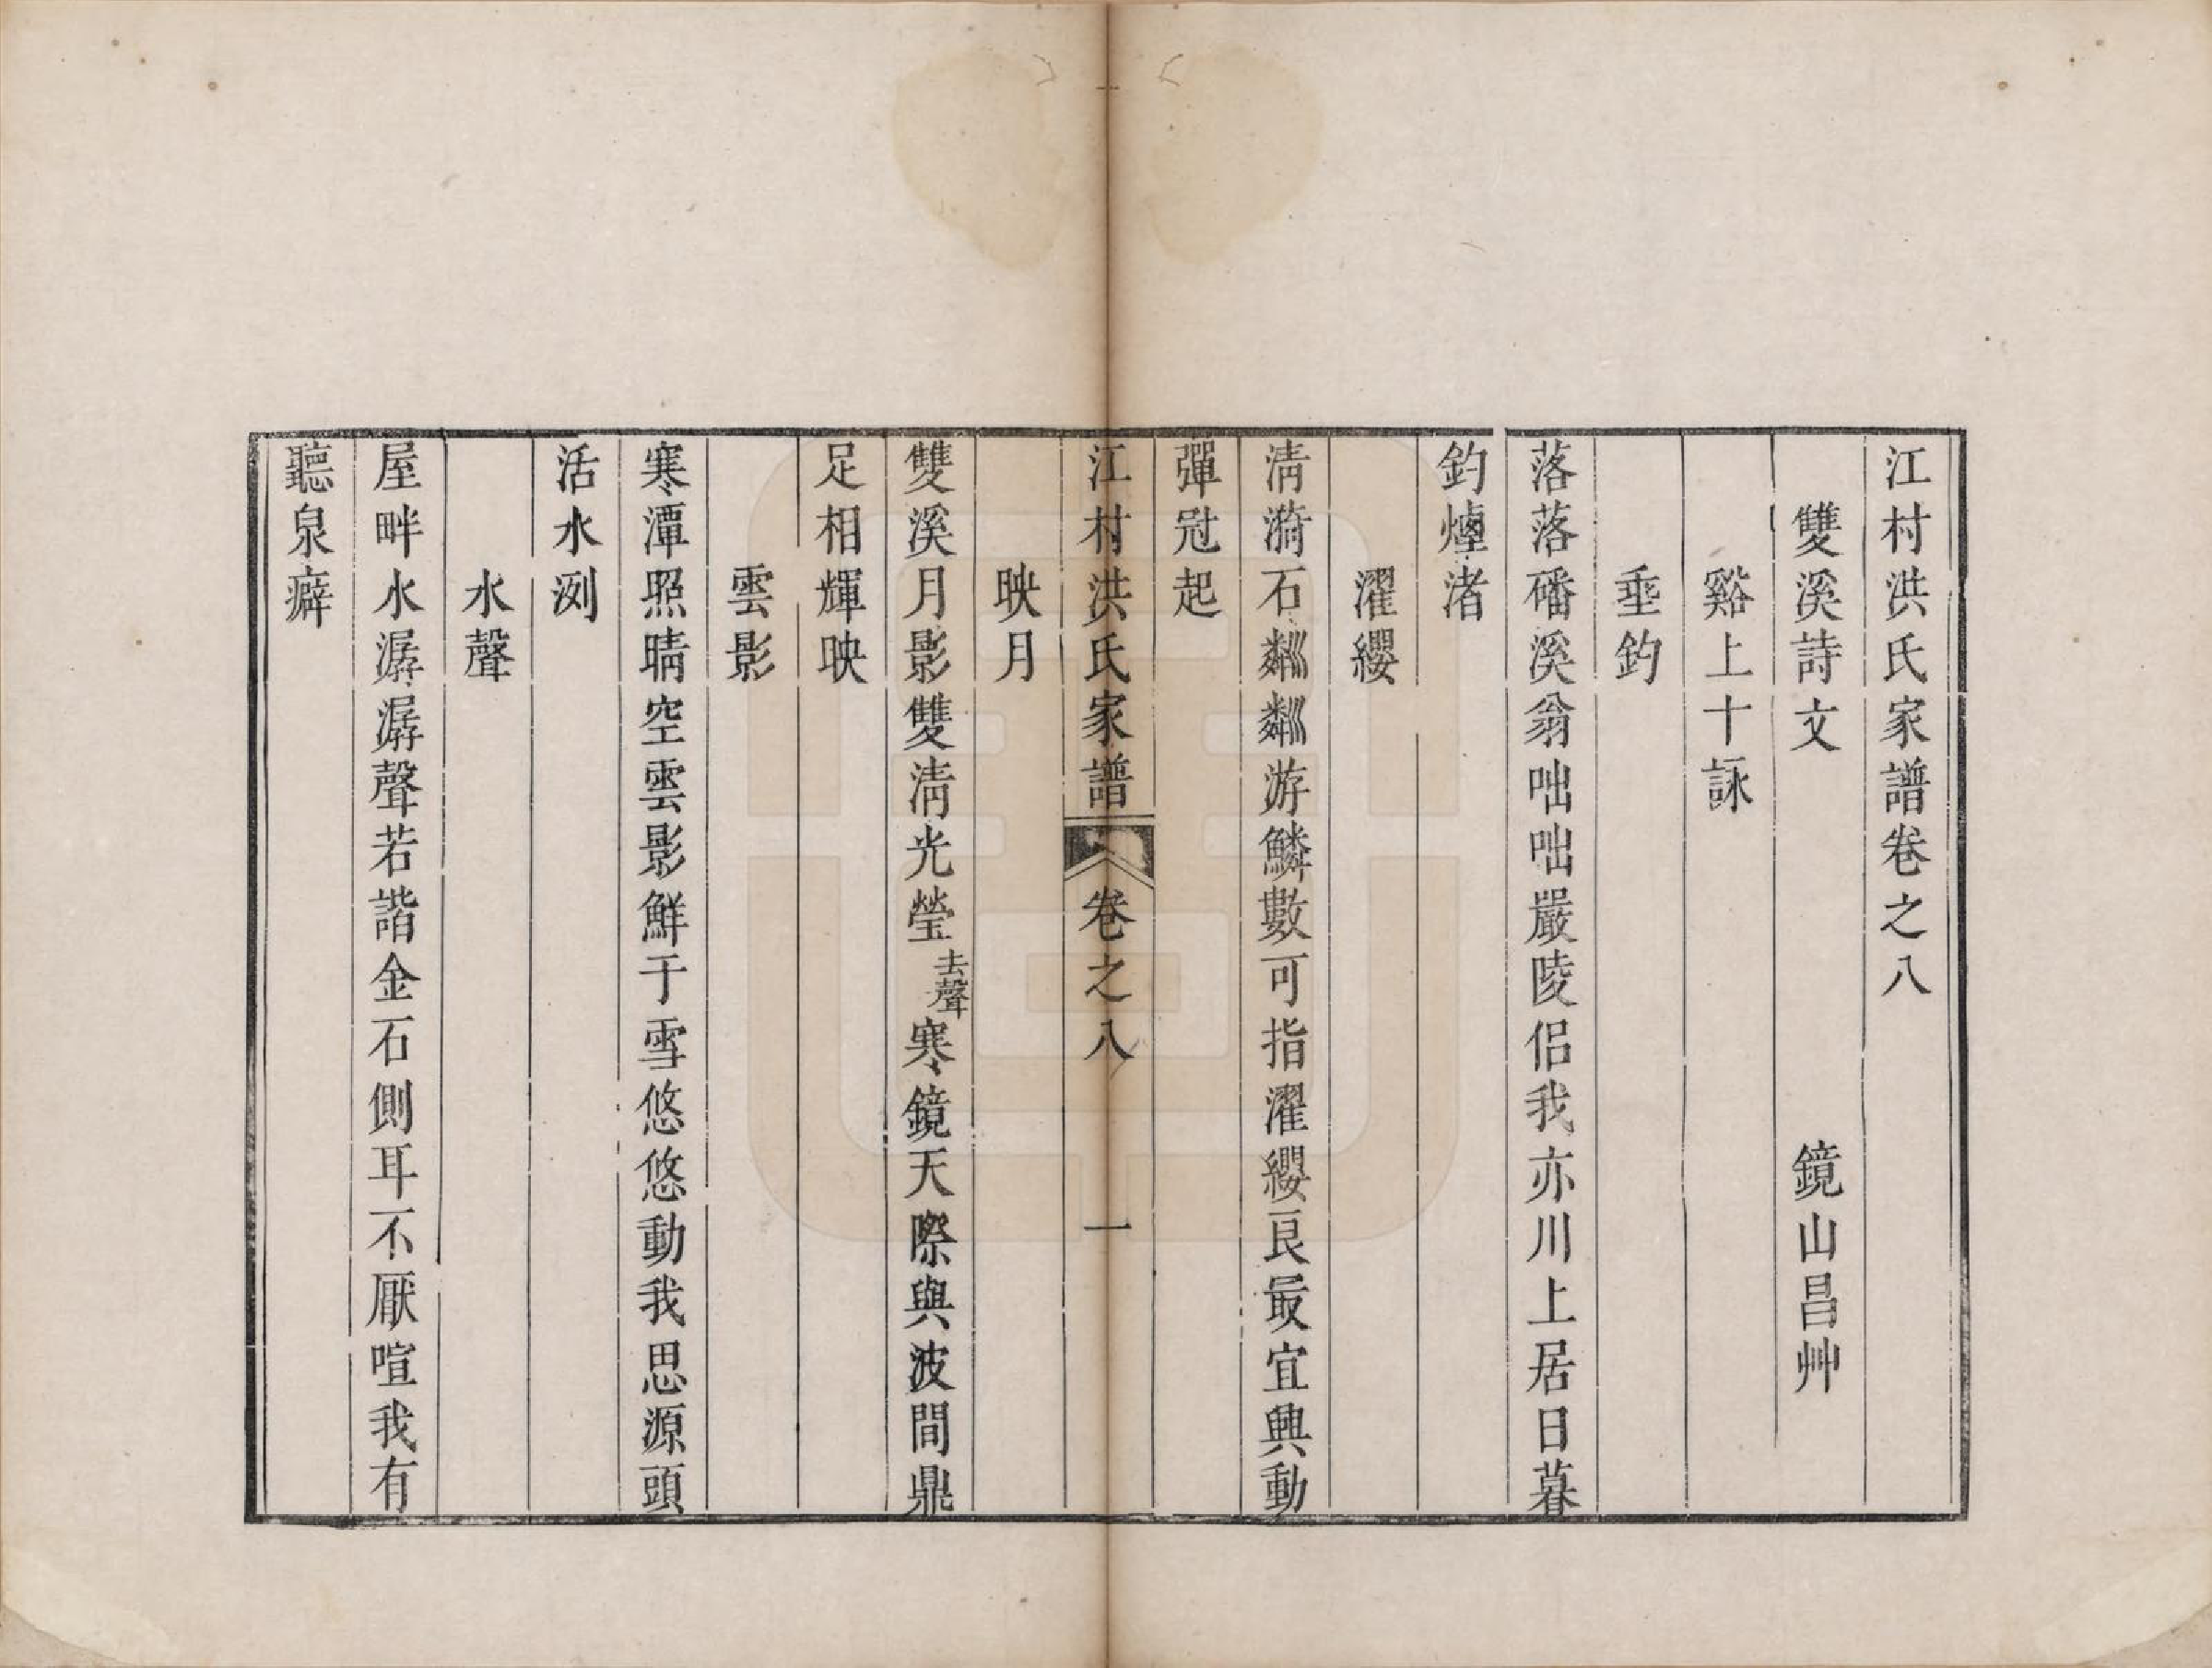 江村洪氏家譜卷之八
雙溪詩文　鏡山昌艸
谿上十詠
垂釣
落落磻溪翁咄咄嚴陵侶我亦川上居日暮
釣煙渚
濯纓
淸漪石粼粼游鱗數可指濯纓良最宜興動
彈冠起
江村洪氏家譜　卷之八　一
映月
雙溪月影雙淸光瑩去聲寒鏡天際與波間鼎
足相輝映
雲影
寒潭照晴空雲影鮮于雪悠悠動我思源頭
活水洌
水聲
屋畔水潺潺聲若諧金石側耳不厭喧我有
聽泉癖